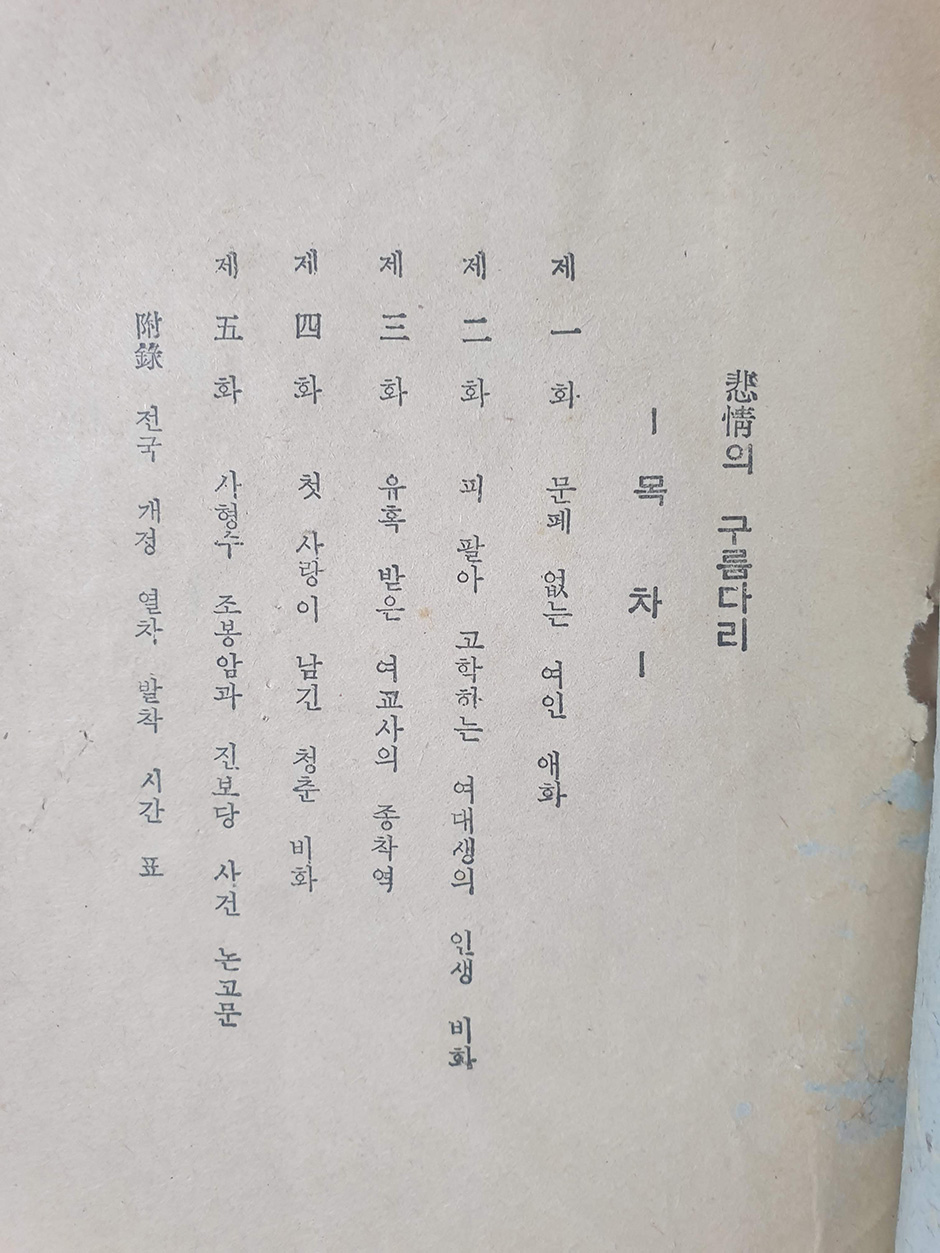 悲情의 구름다리
— 목 차 —
제 一 화 문패 없는 여인 애화
제 二 화 피 팔아 고학하는 여대생의 인생 비화
제 三 화 유혹 받은 여교사의 종착역
제 四 화 첫 사랑이 남긴 청춘 비화
제 五 화 사형수 조봉암과 진보당 사건 논고문
附錄 전국 개정 열착 발착 시간 표